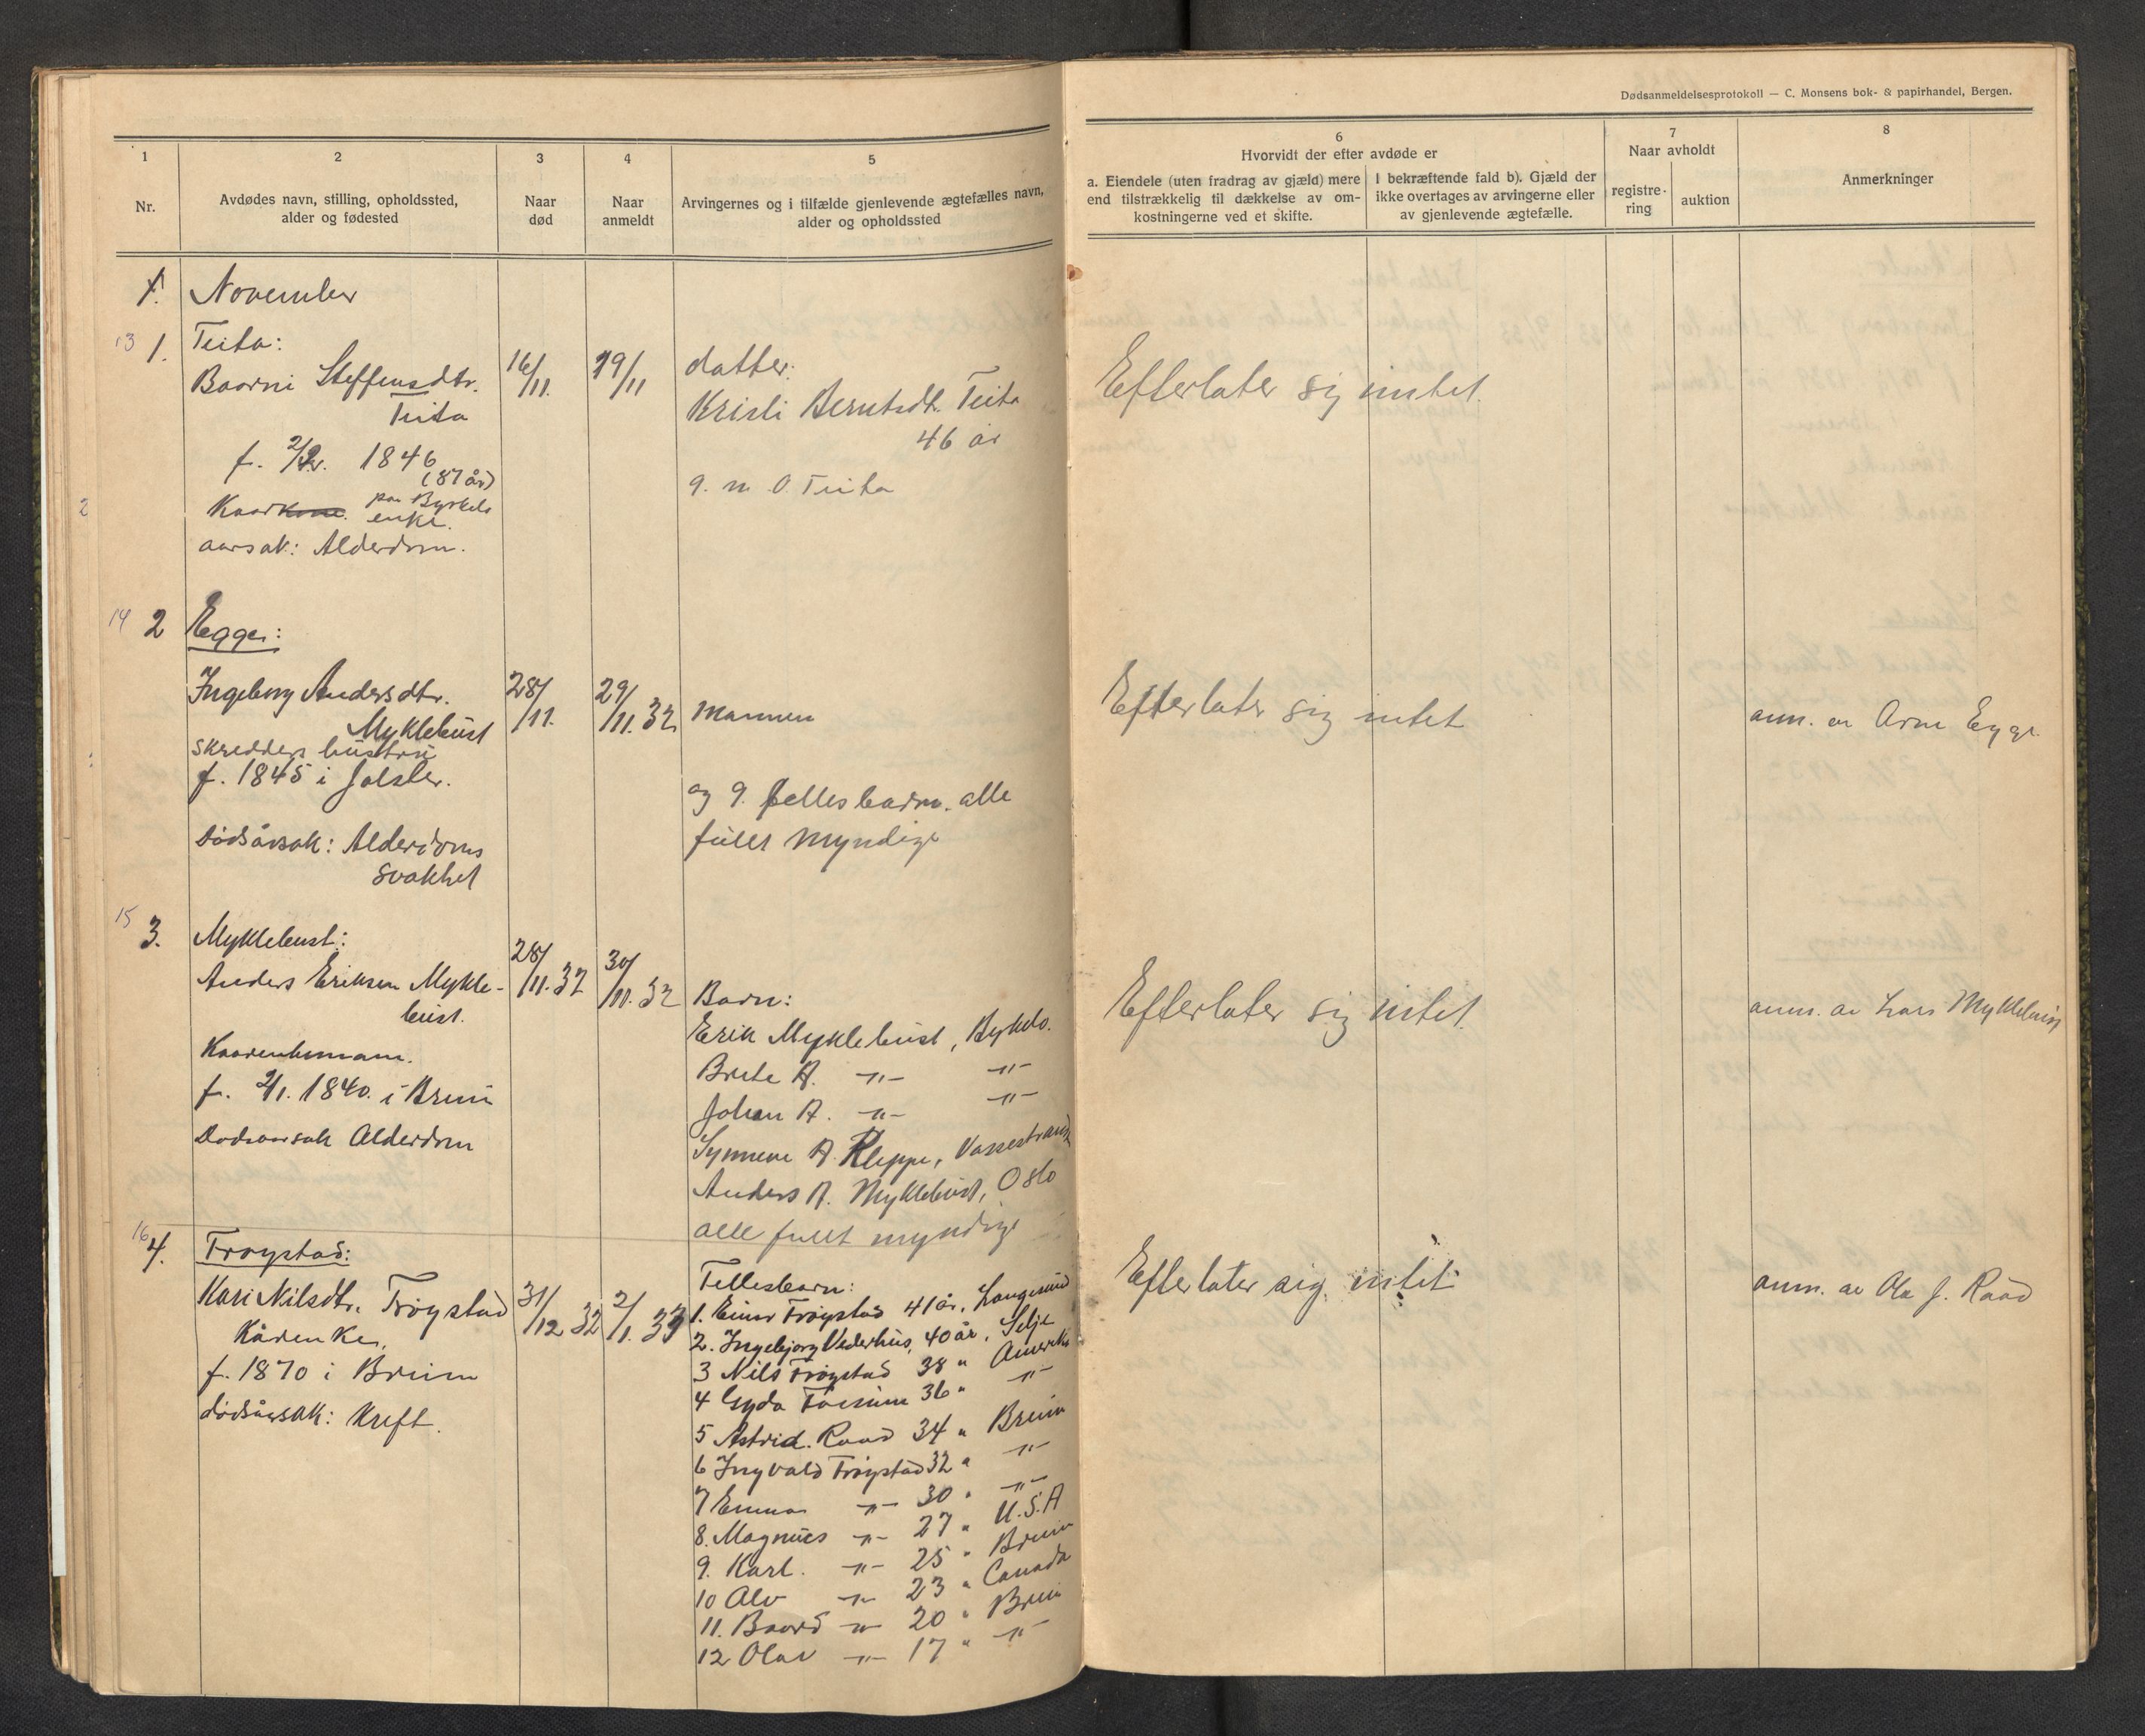 Dødsanmeldelsesprotokoll — C. Monsens bok- & papirhandel, Bergen.
1
2
3
4
5
Nr.
Avdødes navn, stilling, opholdssted,
alder og fødested
Naar
død
Naar
anmeldt
Arvingernes og i tilfælde gjenlevende ægtefælles navn,
alder og opholdssted
6
Hvorvidt der efter avdøde er
a. Eiendele (uten fradrag av gjæld) mere
end tilstrækkelig til dækkelse av om-
kostningerne ved et skifte.
I bekræftende fald b). Gjæld der
ikke overtages av arvingerne eller
av gjenlevende ægtefælle.
7
Naar avholdt
registre-
ring
auktion
8
Anmerkninger
November
13 1. Teita:
Baarni Steffensdtr.
Teita
16/11. 19/11
datter:
Kristi Berntsdtr. Teita
46 år
Efterlater sig intet.
f. 1846
(87 år)
g. m. O. Teita
Kaar paa Byrkelo
enke.
aarsak: Alderdom.
2
14 2 Egge:
Ingeborg Andersdtr.
Myklebust
28/11. 29/11. 32
mannen
Efterlater sig intet
anm. av Arne Egge
skredders hustru
f. 1845 i Jølster.
og 9. felles barn. alle
fullt myndige
Dødsårsak: Alderdoms
svakhet
15 3. Myklebust:
Anders Eriksen Mykle-
bust.
28/11. 32 30/11. 32
Barn:
Efterlater sig intet.
anm. av Lars Myklebust
Erik Myklebust, Byrkelo.
Kaarenkemann.
Brite A. -"- -"-
f. 2/1. 1840. i Breim
Johan A. -"- -"-
Dødsaarsak Alderdom
Synneve A. Kleppe, Vassestrand
Anders A. Myklebust, Oslo
alle fullt myndige
16 4. Trøystad:
Kari Nilsdtr. Trøystad
31/12 32 2/1. 33
Fellesbarn:
Efterlater sig intet
anm. av Ola J. Raad
Kårenke,
f. 1870 i Breim
dødsårsak: Kreft.
1. Einar Trøystad 41 år, Langesund
2. Ingebjørg Vederhus, 40 år, Selje
3 Nils Trøystad 38 " Amerika
4 Gyda 36 " -"-
5 Astrid. Raad 34 " Breim
6 Ingvald Trøystad 32 " -"-
7 Emma -"- 30 " -"-
8. Magnus -"- 27 " U.S.A
9. Karl. -"- 25 " Breim
10 Alv -"- 23 " Canada
11. Baard -"- 20 " Breim
12 Olav -"- 17 " -"-